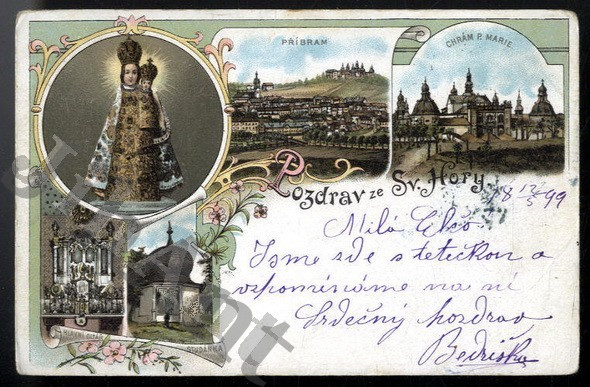 PŘÍBRAM
CHRÁM P. MARIE
Pozdrav ze Sv. Hory.
18 12/5 99
Milá
Jsme zde s tetičkou a
vzpomínáme na ní
Srdečný pozdrav
Bedřiška
HLAVNÍ OLTÁŘ
STUDÁNKA